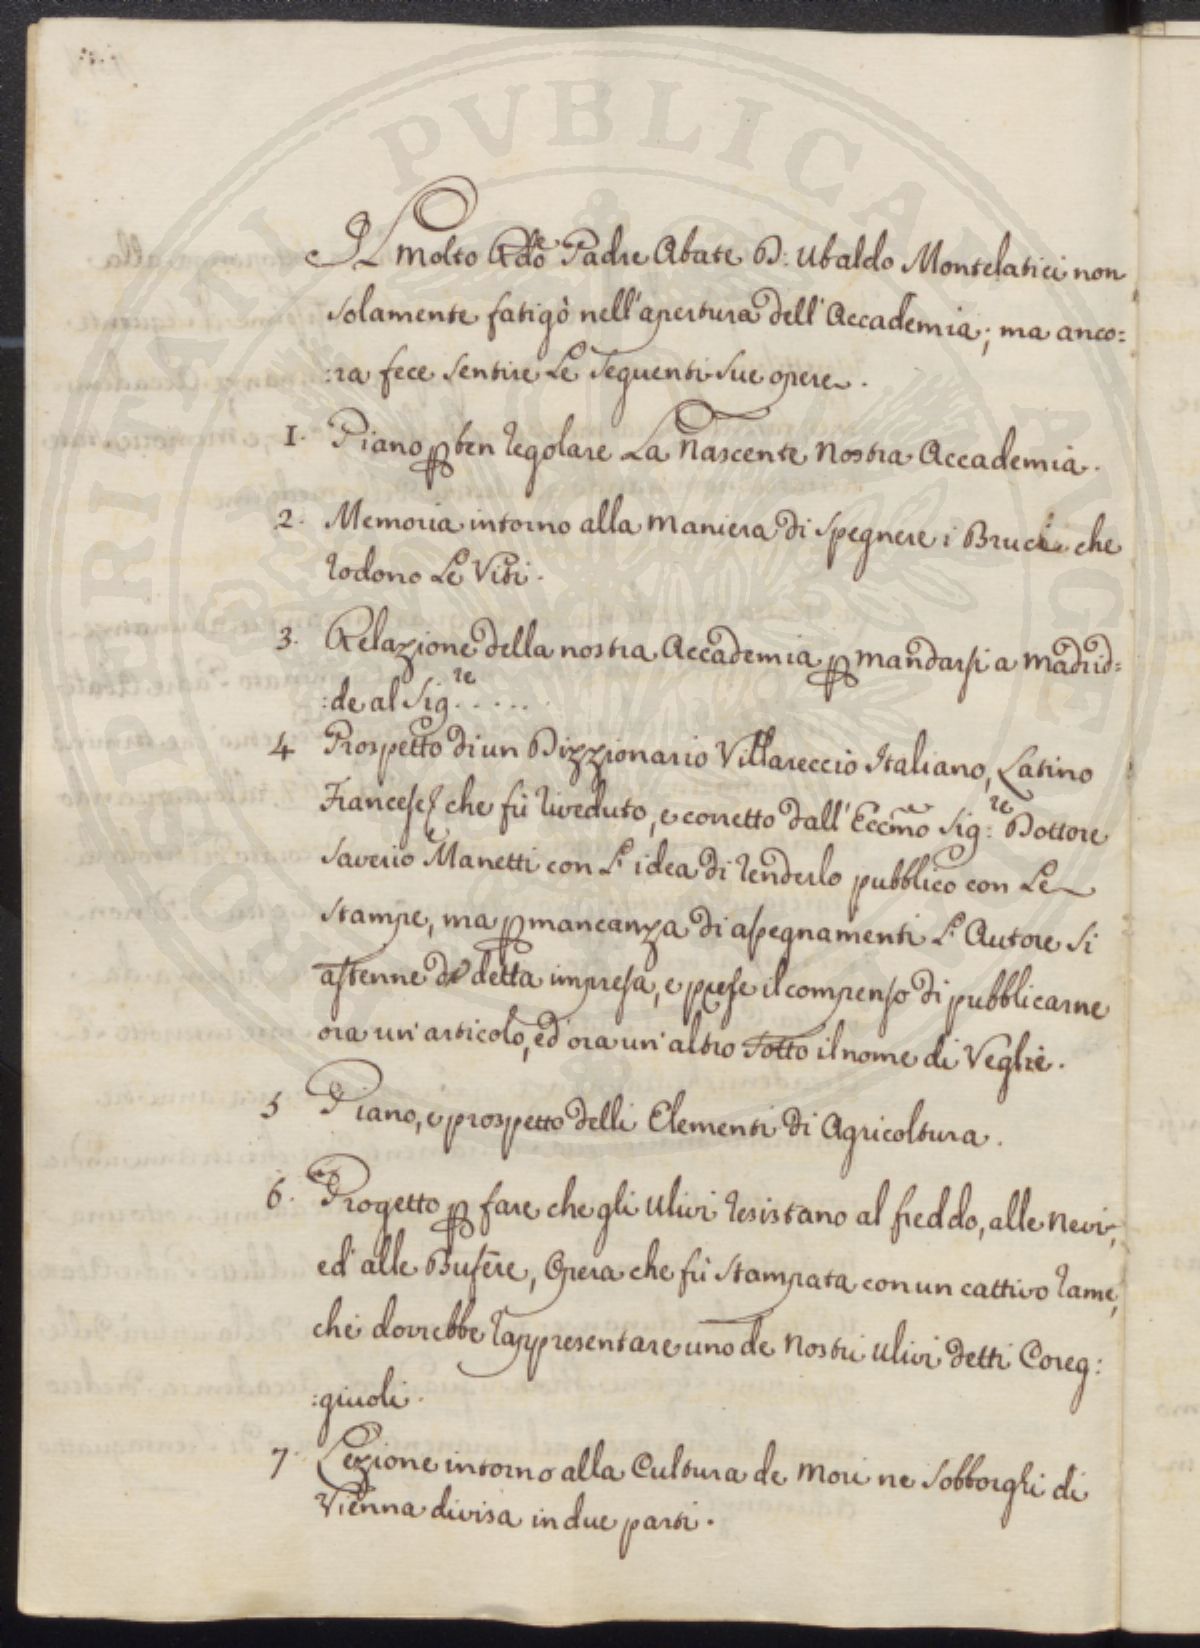 Il Molto Rdo Padre Abate D: Ubaldo Montelatici non
solamente fatigò nell'apertura dell'Accademia; ma anco:
:ra fece sentire Le seguenti sue opere.
1. Piano p ben regolare La Nascente Nostra Accademia.
2. Memoria intorno alla maniera di spegnere i Bruci che
rodono Le Viti.
3. Relazione della nostra Accademia p mandarsi a Madrid:
:de al Sig.re .....
4 Prospetto di un Dizzionario Villareccio Italiano, Latino
Francese, che fù riveduto, e corretto dall'Eccmo Sig:re Dottore
Saverio Manetti con L'idea di renderlo pubblico con Le
stampe, ma p mancanza di assegnamenti L'Autore si
astenne di detta impresa, e prese il compenso di pubblicarne
ora un'articolo, ed ora un'altro sotto il nome di Veglie.
5 Piano, e prospetto delli Elementi di Agricoltura.
6. Progetto p fare che gli ulivi resistano al freddo, alle nevi,
ed alle Bufere, Opera che fù stampata con un cattivo rame,
che dovrebbe rappresentare uno de Nostri ulivi detti Coreg:
:giuoli.
7. Lezione intorno alla Cultura de Mori ne Sobborghi di
Vienna divisa in due parti.
PROSPERITATI PVBLICAE AVGENDAE